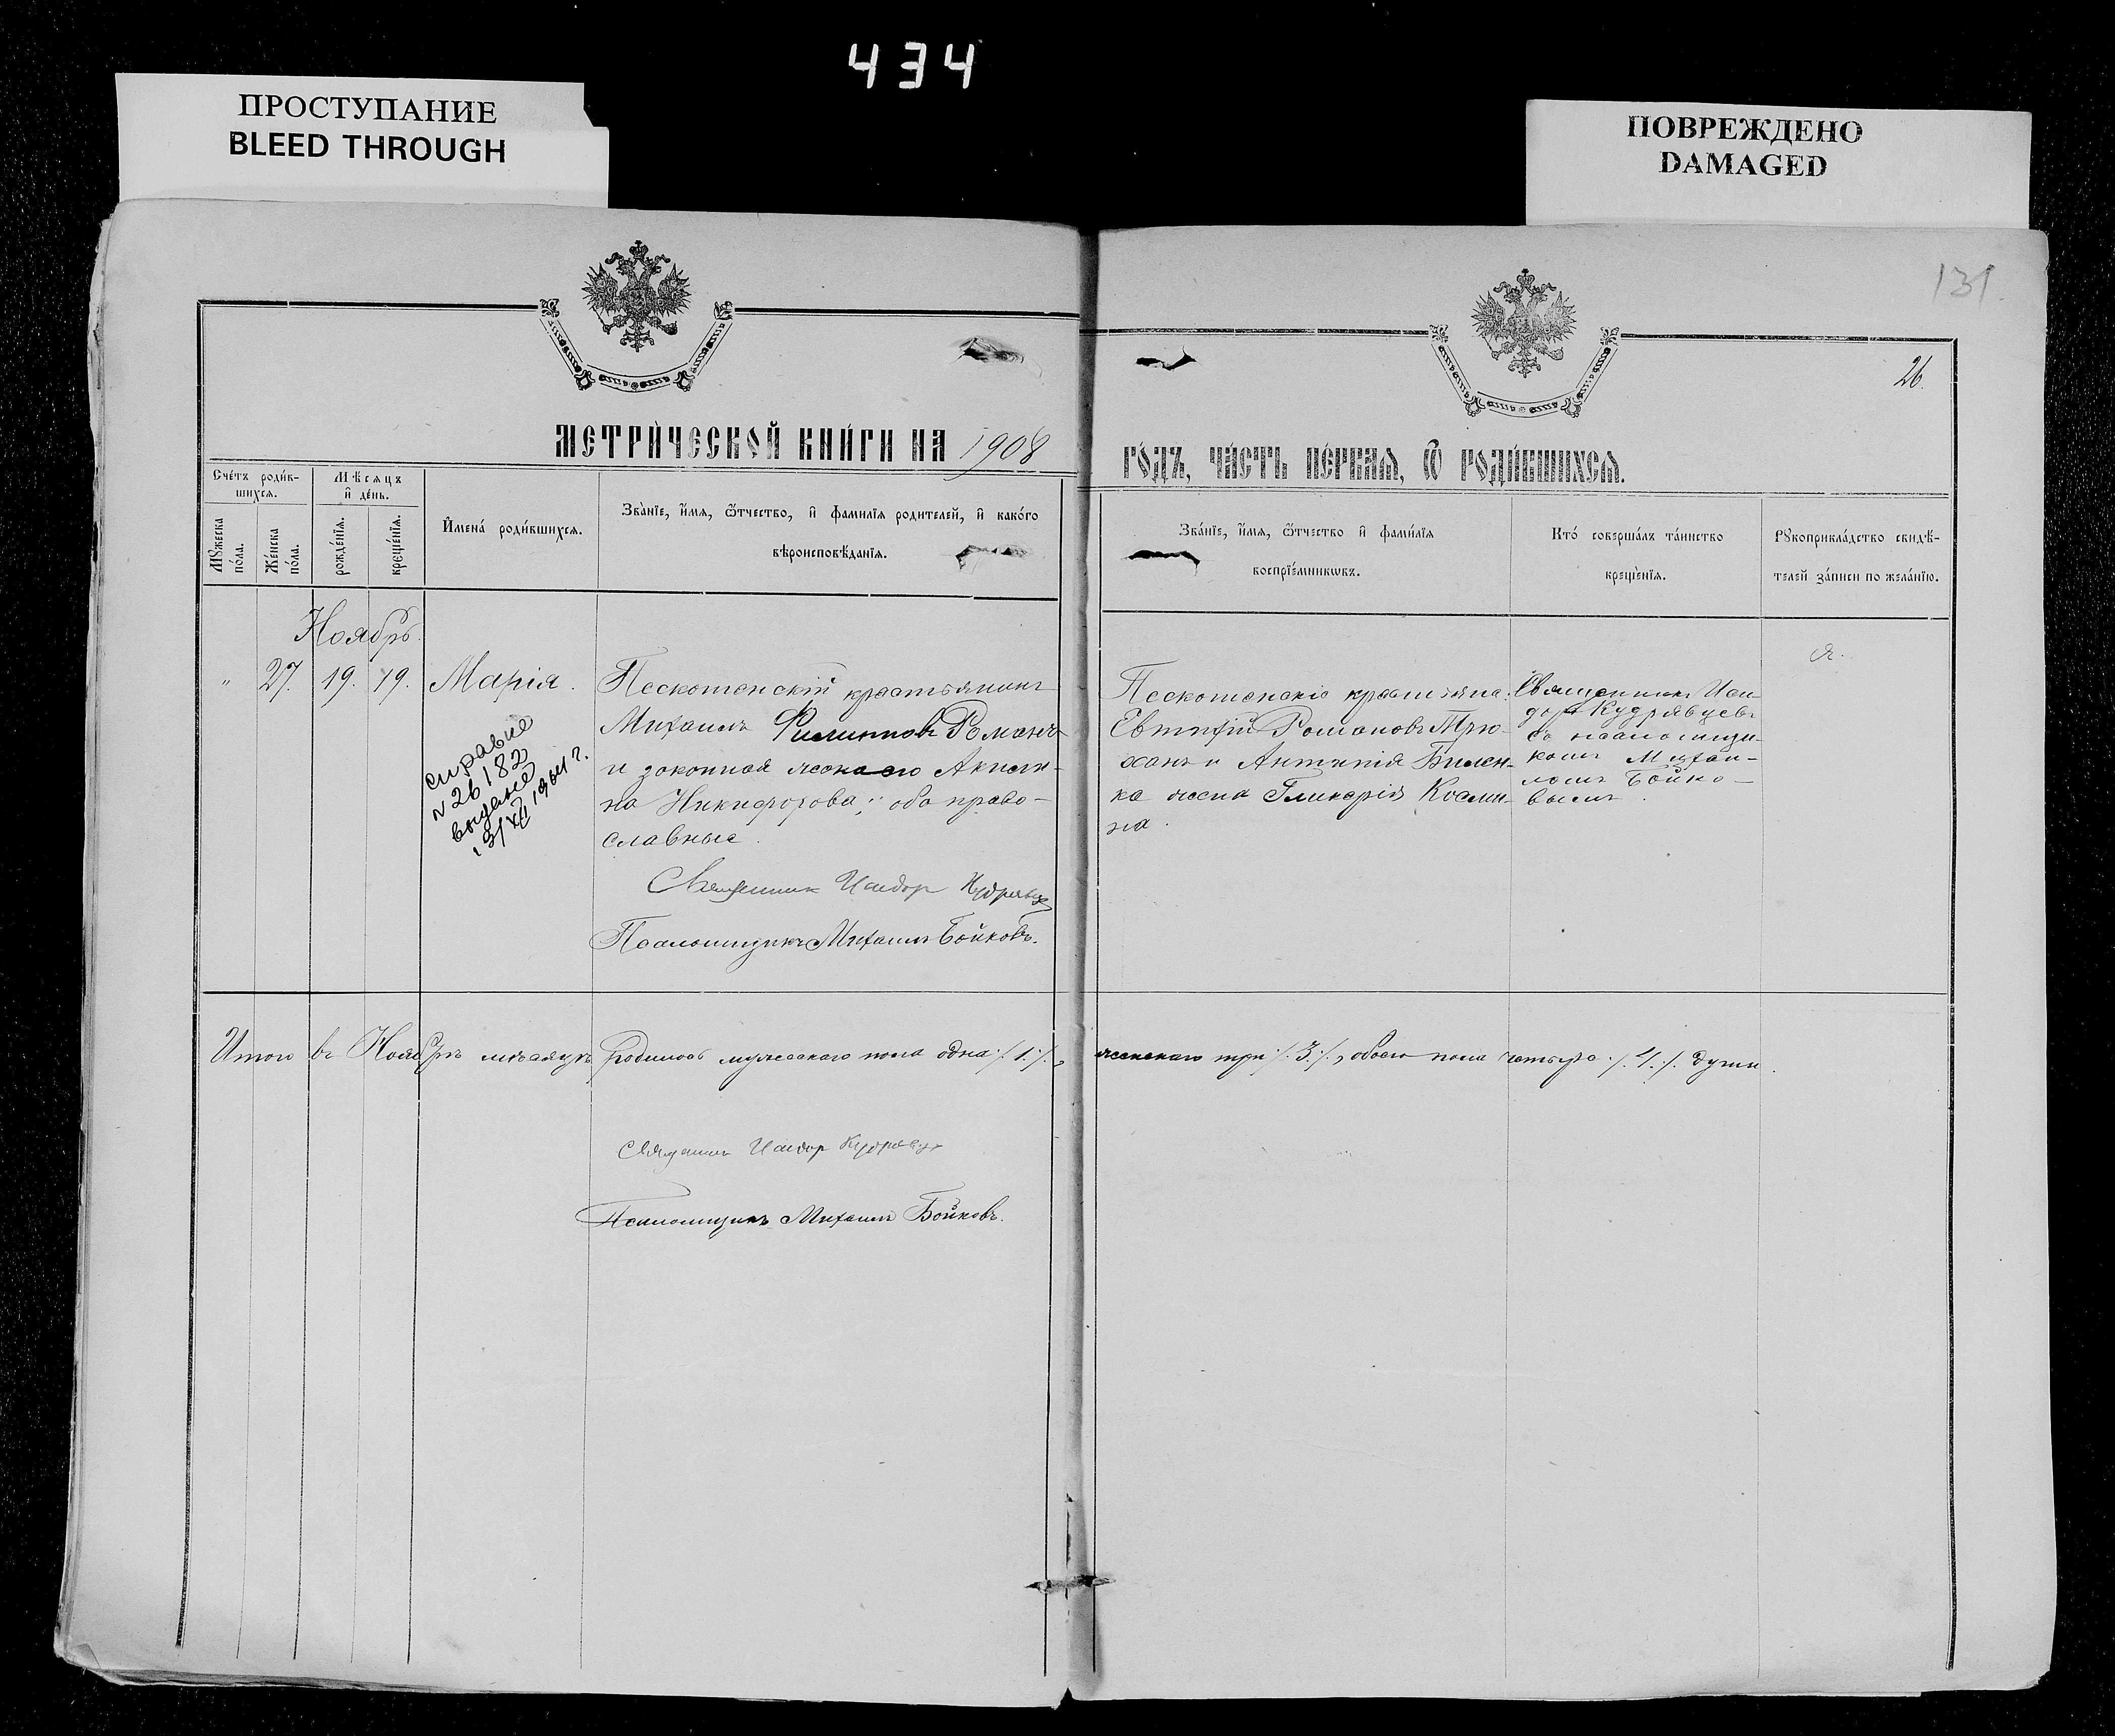 434
ПРОСТУПАНИЕ
BLEED THROUGH
ПОВРЕЖДЕНО
DAMAGED
131.
26.
МЕТРИ́ЧЕСКОЙ КНИ́ГИ НА 1908
ГО́ДЪ, ЧА́СТЬ ПЕ́РВАЯ, Ѿ РОДИ́ВШИХСЯ.
Сче́тъ роди́в-
шихся.
Мѣсяцъ
и҆ де́нь.
Мꙋжеска
по́ла.
Же́нска
по́ла.
рожде́нїя.
креще́нїя.
И҆мена́ роди́вшихся.
Зва́нїе, и҆́мя, ѻ҆́тчество, и҆ фами́лїя родителей, и҆ како́го
вѣроисповѣ́данїя.
Зва́нїе, и҆́мя, ѻ҆́тчество и҆ фами́лїя
воспрїе́мникѡвъ.
Кто̀ соверша́лъ та́инство
креще́нїя.
Рꙋкоприкла́дство свидѣ́-
телей за́писи по жела́нїю.
Ноябрь.
" 27. 19. 19. Марія.
Пескотенскій крестьянинъ
Михаилъ Филипповъ Романъ
и законная жена его Акили-
на Никифорова; оба право-
славные.
Священник Исидор Кудрявцев
Псаломщикъ Михаилъ Бойковъ.
справка
N 26182
выдана
13/XII 1964 г.
Пескотенскіе крестьяне:
Евтихій Романовъ
и Билен-
ка жена Гликерія Косми-
на.
Священникъ Иси-
доръ Кудрявцевъ
съ псаломщи-
комъ Михаи-
ломъ Бойко-
вымъ.
Итого въ Ноябрѣ мѣсяцѣ родилось мужескаго пола одна /.1./., женскаго три /.3./., обоего пола четыре /.4./. души.
Священник Исидор Кудрявцев
Псаломщикъ Михаилъ Бойковъ.